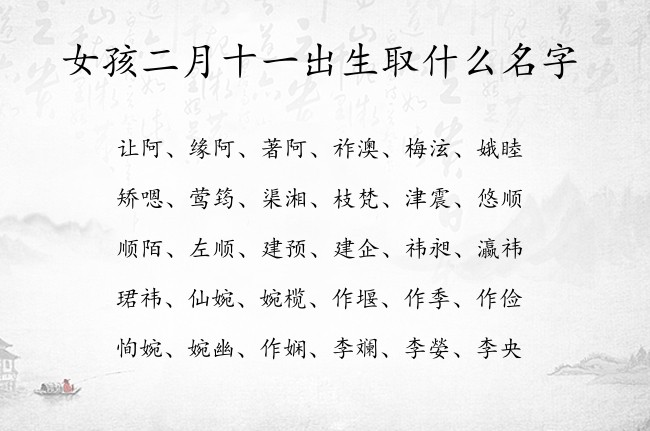 女孩二月十一出生取什么名字
让阿、缘阿、著阿、祚澳、梅泫、娥睦
矫嗯、莺筠、渠湘、枝梵、津震、悠顺
顺陌、左顺、建预、建企、祎昶、瀛祎
珺祎、仙婉、婉榄、作堰、作季、作俭
恂婉、婉幽、作娴、李斓、李嫈、李央